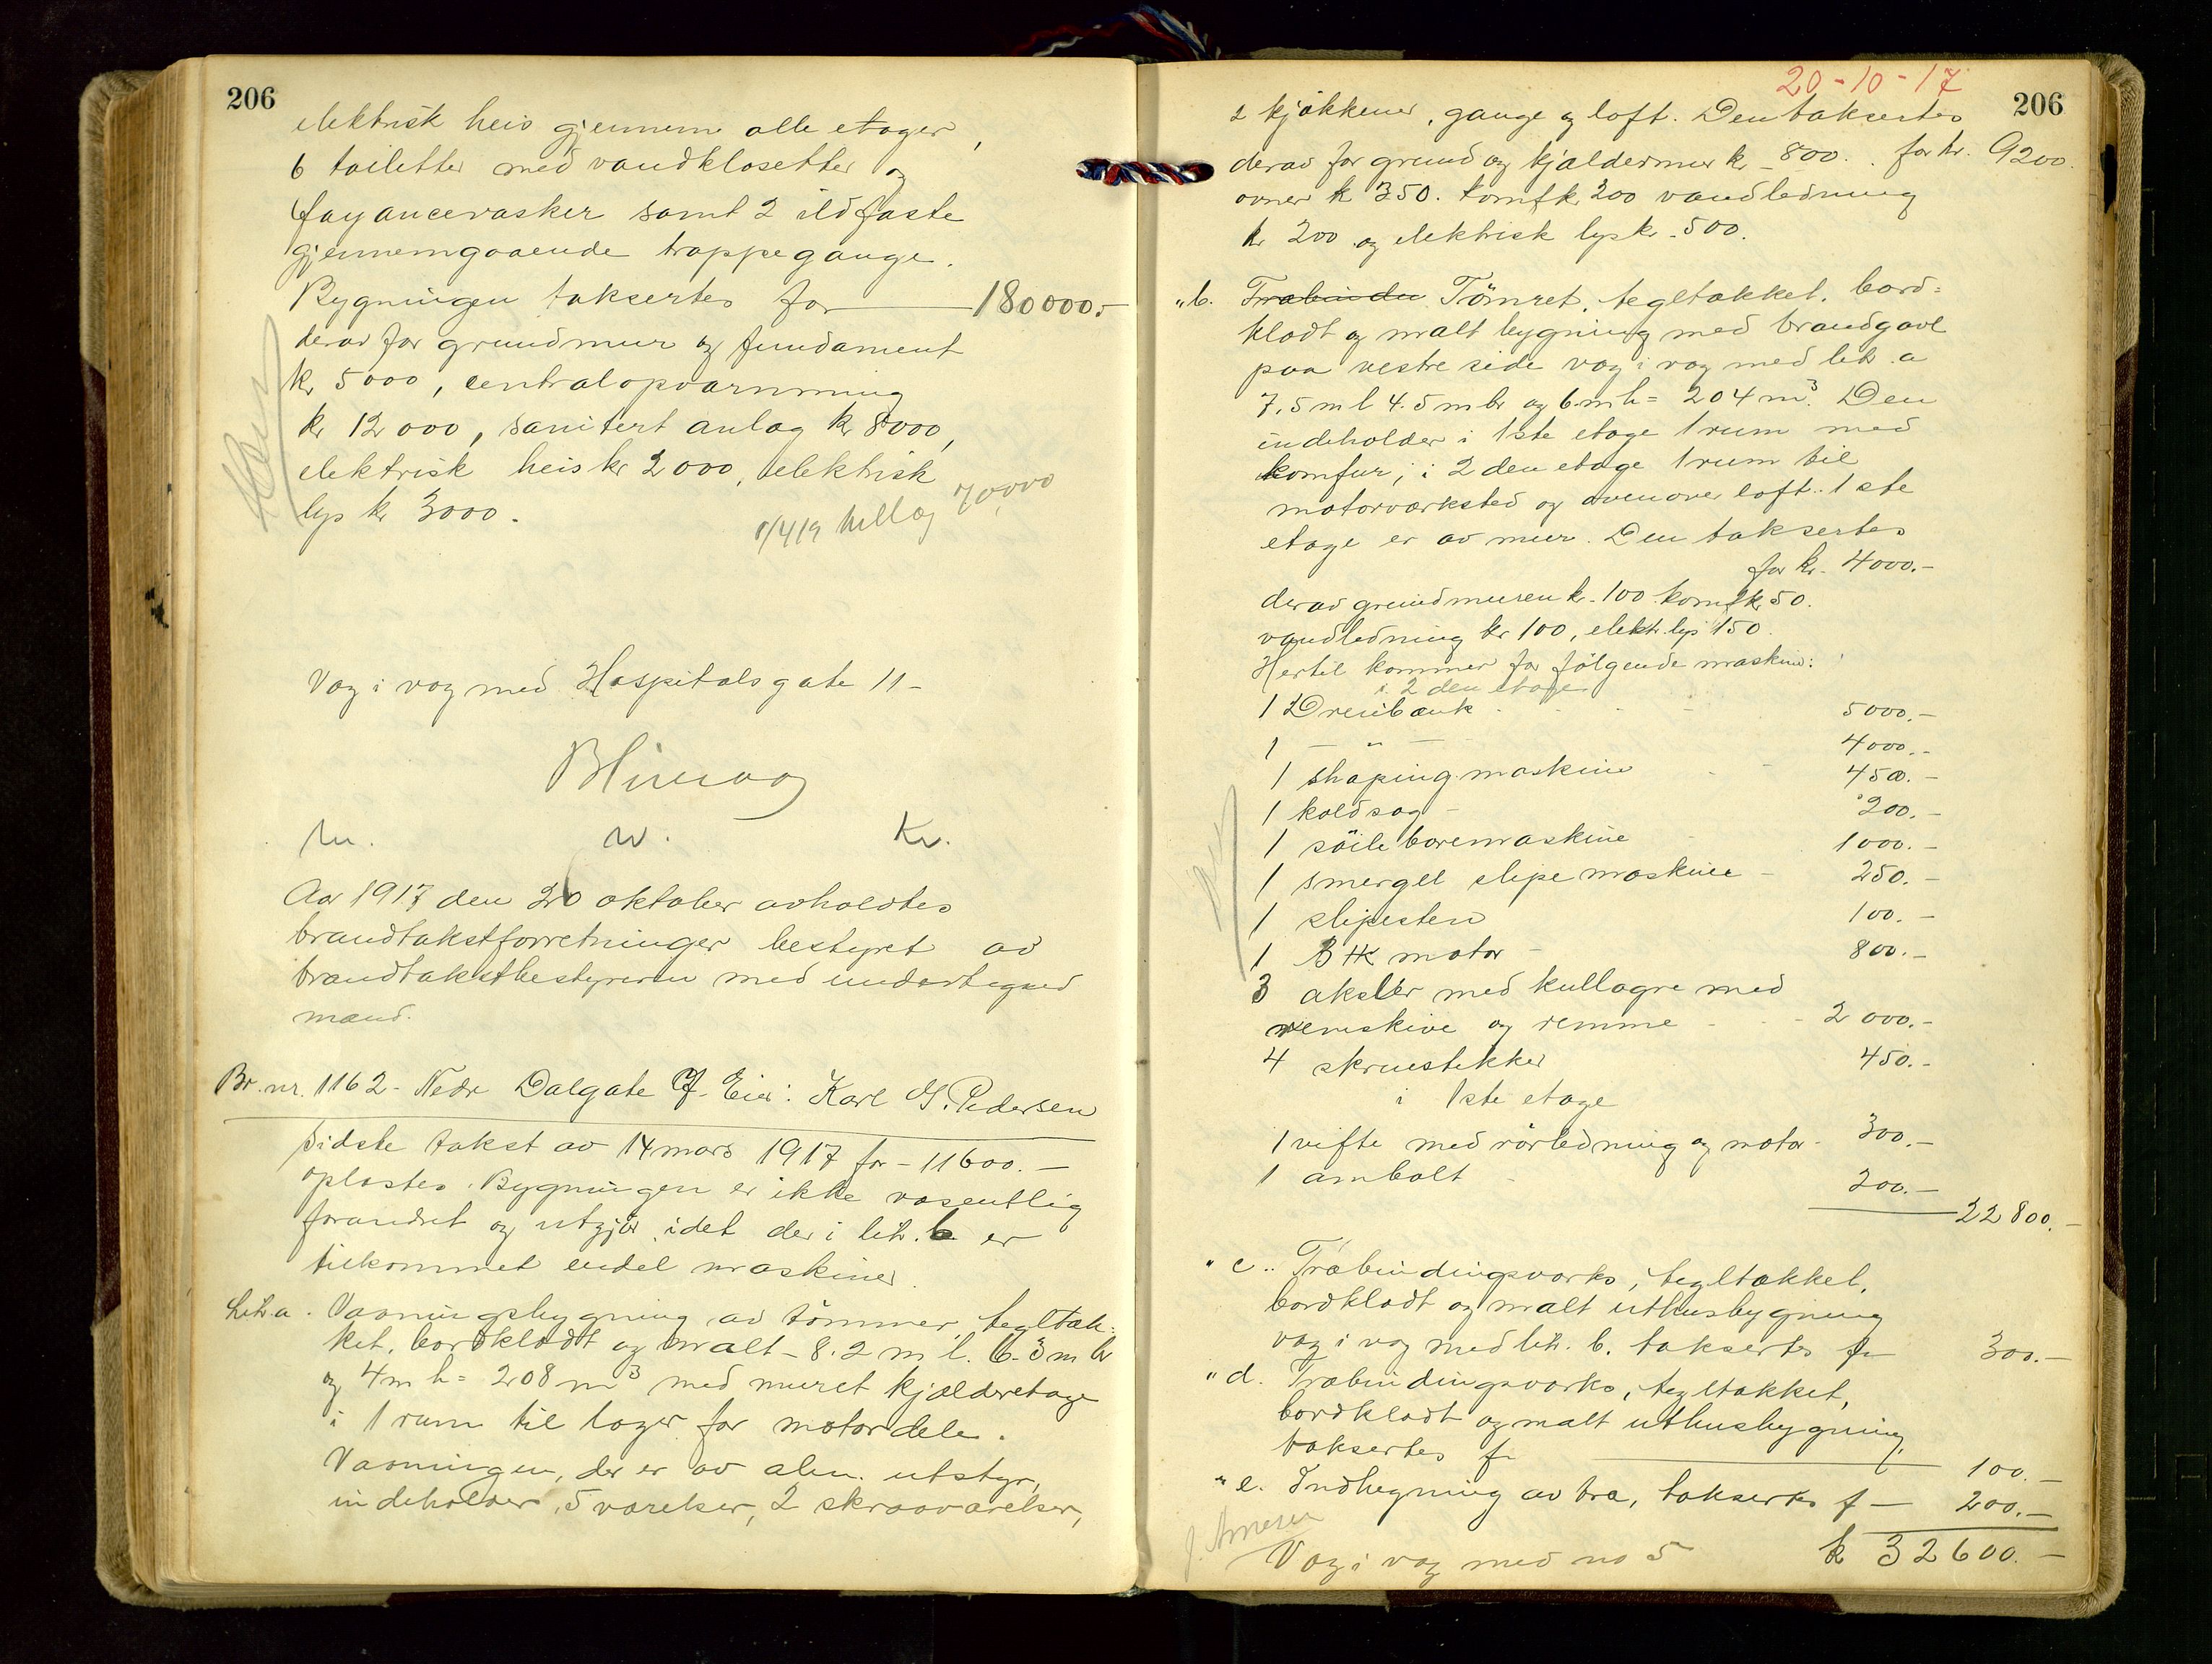 206
elektrisk heis gjennem alle etager,
6 toiletter med vandklosetter og
fayancevasker samt 2 ildfaste
gjennemgaaende trappegange.
Bygningen taksertes for 180000.-
derav for grundmur og fundament
kr 5000, centralopvarmning
kr 12000, sanitert anlæg kr 8000,
elektrisk heis kr 2000, elektrisk
lys kr 3000.
1/4 19 tillæg 70,000
Væg i væg med Hospitalsgate 11 -
Aar 1917 den 20 oktober avholdtes
brandtakstforretninger bestyret av
brandtakstbestyreren med undertegned
mænd.
Br. nr. 1162 - Nedr Dalgate 7. Eier: Karl G. Pedersen
Sidste takst av 14 mars 1917 for - 11600.-
oplæstes. Bygningen er ikke væsentlig
forandret og utgjør, idet der i litr. b er
tilkommet endel maskiner.
Litr. a. Vaaningsbygning av tømmer, tegltæk-
ket, bordklædt og malt - 8.2 m l. 6.3 m br
og 4 m h = 208 m3 med muret kjælderetage
i 1 rum til lager for motordele.
Vaaningen, der er av alm. utstyr,
indeholder 5 værelser, 2 skraaværelser,
20-10-17
206
2 kjøkkener, gange og loft. Den taksertes
for kr. 9200.
derav for grund og kjældermur kr 800.
ovner kr 350. komf kr 200 vandledning
kr 200 og elektrisk lys kr. 500.
" b. Træbinder Tømret, tegltækket, bord-
klædt og malt bygning med brandgavl
paa vestre side væg i væg med litr. a
7,5 m l 4.5 m br og 6 m h = 204 m3. Den
indeholder i 1ste etage 1 rum med
komfur, i 2den etage 1 rum til
motorværksted og ovenover loft. 1ste
etage er av mur. Den taksertes
for kr. 4000.-
derav grundmuren kr. 100 komf kr 50.
vandledning kr 100, elektr. lys 150.
Hertil kommer for følgende maskiner:
i 2den etage
1 Dreiebænk - 5000.-
1 - " - 4000.-
1 shapingmaskine 4500.-
1 koldsag - 200.-
1 søileboremaskine 1000.-
1 smergel slipemaskine - 250.-
1 slipesten 100.-
1 3 HK motor - 800.-
3 aksler med kullagre med
remskive og remme - 2000.-
4 skruestikker 450.-
i 1ste etage
1 vifte med rørledning og motor - 300.-
1 ambolt 200.-
22800.-
" c. Træbindingsverks, tegltækket,
bordklædt og malt uthusbygning
væg i væg med litr. b. taksertes for 300.-
" d. Træbindingsverks, tegltækket,
bordklædt og malt uthusbygning,
taksertes for 100.-
" e. Indhegning av træ, taksertes f - 200.-
J. Arnesen
Væg i væg med no 5 kr 32600.-